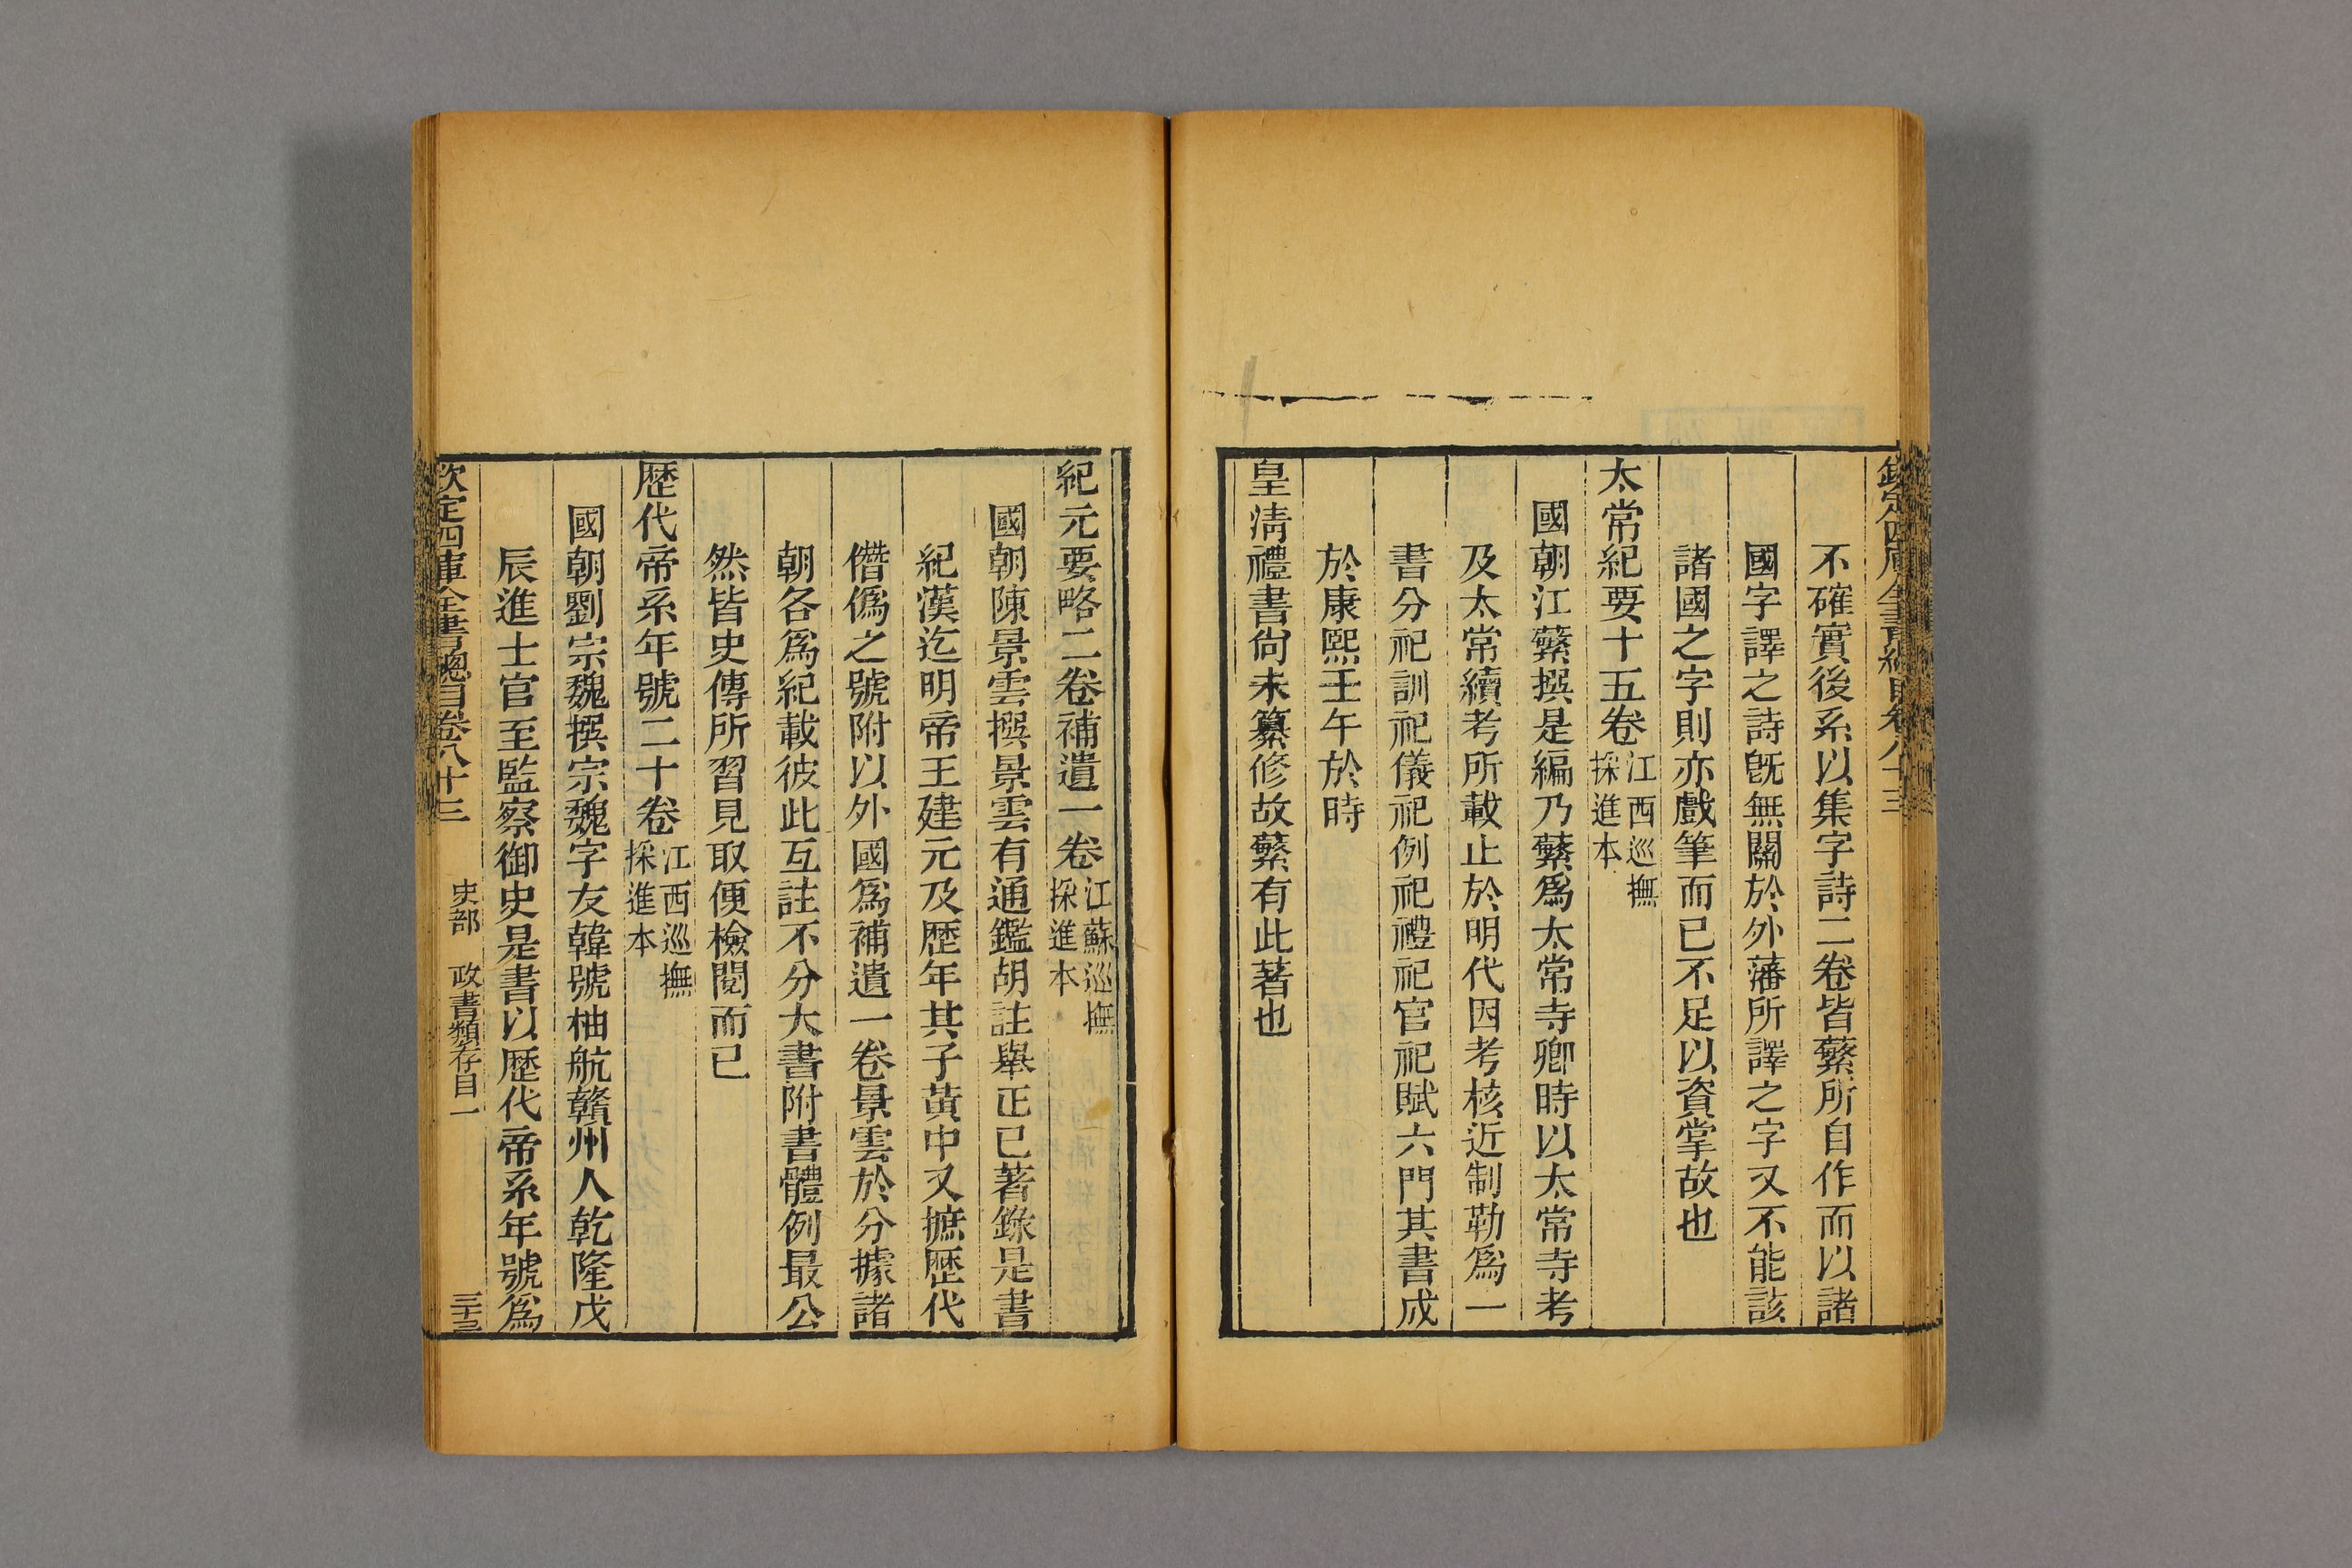 欽定四庫全書總目卷八十三
不確實後系以集字詩二卷皆蘩所自作而以諸
國字譯之詩旣無關於外藩所譯之字又不能該
諸國之字則亦戲筆而已不足以資掌故也
太常紀要十五卷江西巡撫
採進本
國朝江蘩撰是編乃蘩爲太常寺卿時以太常寺考
及太常續考所載止於明代因考核近制勒爲一
書分祀訓祀儀祀例祀禮祀官祀賦六門其書成
於康熙壬午於時
皇淸禮書尙未纂修故蘩有此著也
紀元要略二卷補遺一卷江蘇巡撫
採進本
國朝陳景雲撰景雲有通鑑胡註舉正已著錄是書
紀漢迄明帝王建元及歷年其子黃中又摭歷代
僭僞之號附以外國爲補遺一卷景雲於分據諸
朝各爲紀載彼此互註不分大書附書體例最公
然皆史傳所習見取便檢閱而已
歷代帝系年號二十卷江西巡撫
採進本
國朝劉宗魏撰宗魏字友韓號柚航贛州人乾隆戊
辰進士官至監察御史是書以歷代帝系年號爲
欽定四庫全書總目卷八十三 史部 政書類存目一